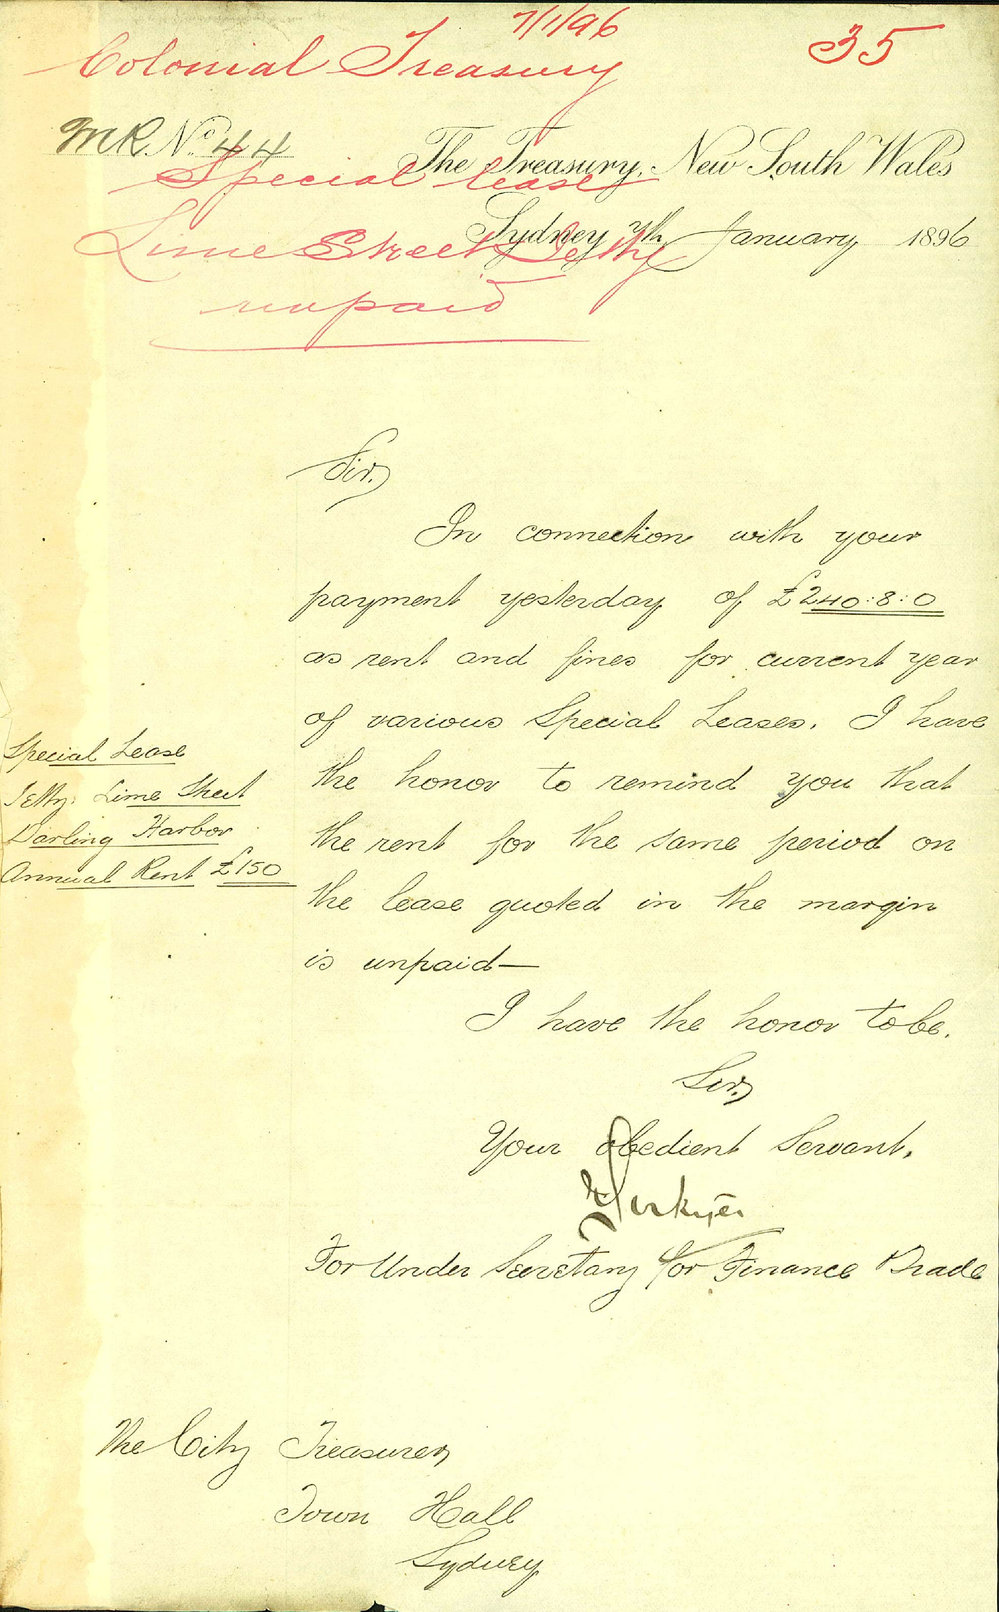 7/1/96
35
Colonial Treasury
MR No. 44
The Treasury, New South Wales
Special lease
Sydney 7th January 1896
Lime Street Jetty
unpaid
Sir,
In connection with your
payment yesterday of £240:8:0
as rent and fines for current year
of various Special Leases. I have
the honor to remind you that
the rent for the same period on
the lease quoted in the margin
is unpaid—
Special Lease
Jetty. Lime Street
Darling Harbor
Annual Rent £150
I have the honor to be.
Sir,
Your Obedient Servant.
For Under Secretary for Finance Trade
The City Treasurer
Town Hall
Sydney